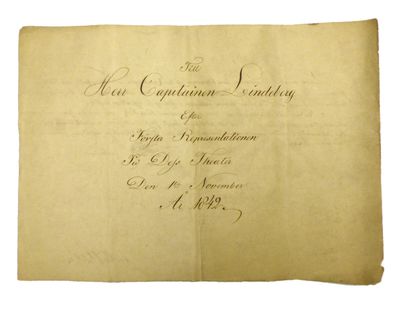 Till
Herr Capitainen Lindeberg
Efter
Första Representationen
På Dess Theater
Den 1e November
År 1842.